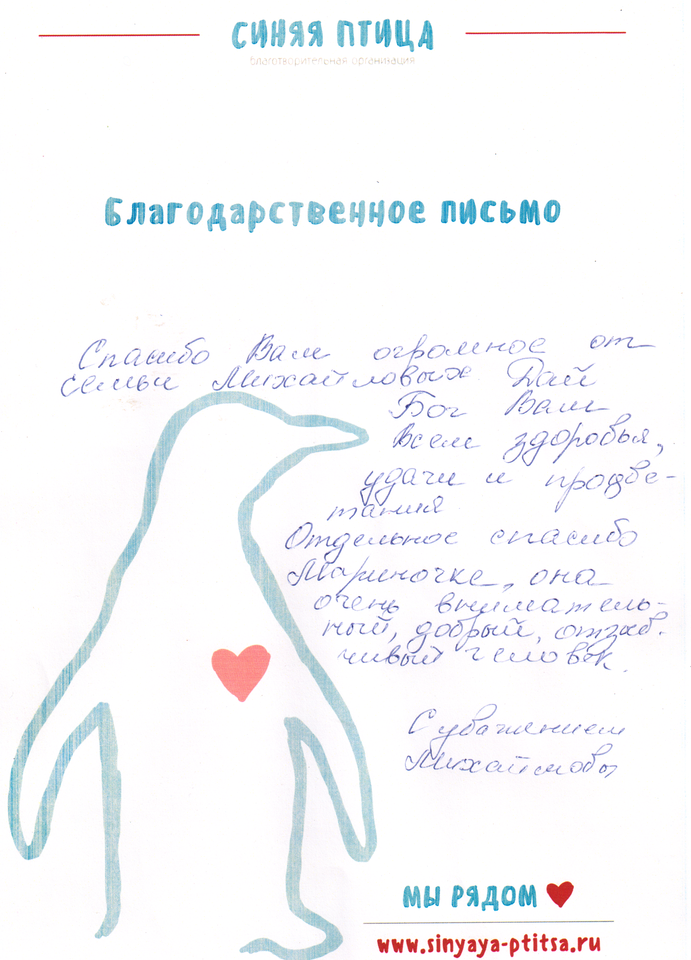 СИНЯЯ ПТИЦА
благотворительная организация
Благодарственное письмо
Спасибо Вам огромное от
семьи Михайловых Дай
Бог Вам
всем здоровья,
удачи и процве-
тания
Отдельное спасибо
Мариночке, она
очень вниматель-
ный, добрый, отзыв-
чивый человек.
С уважением
Михайловы
МЫ РЯДОМ
www.sinyaya-ptitsa.ru